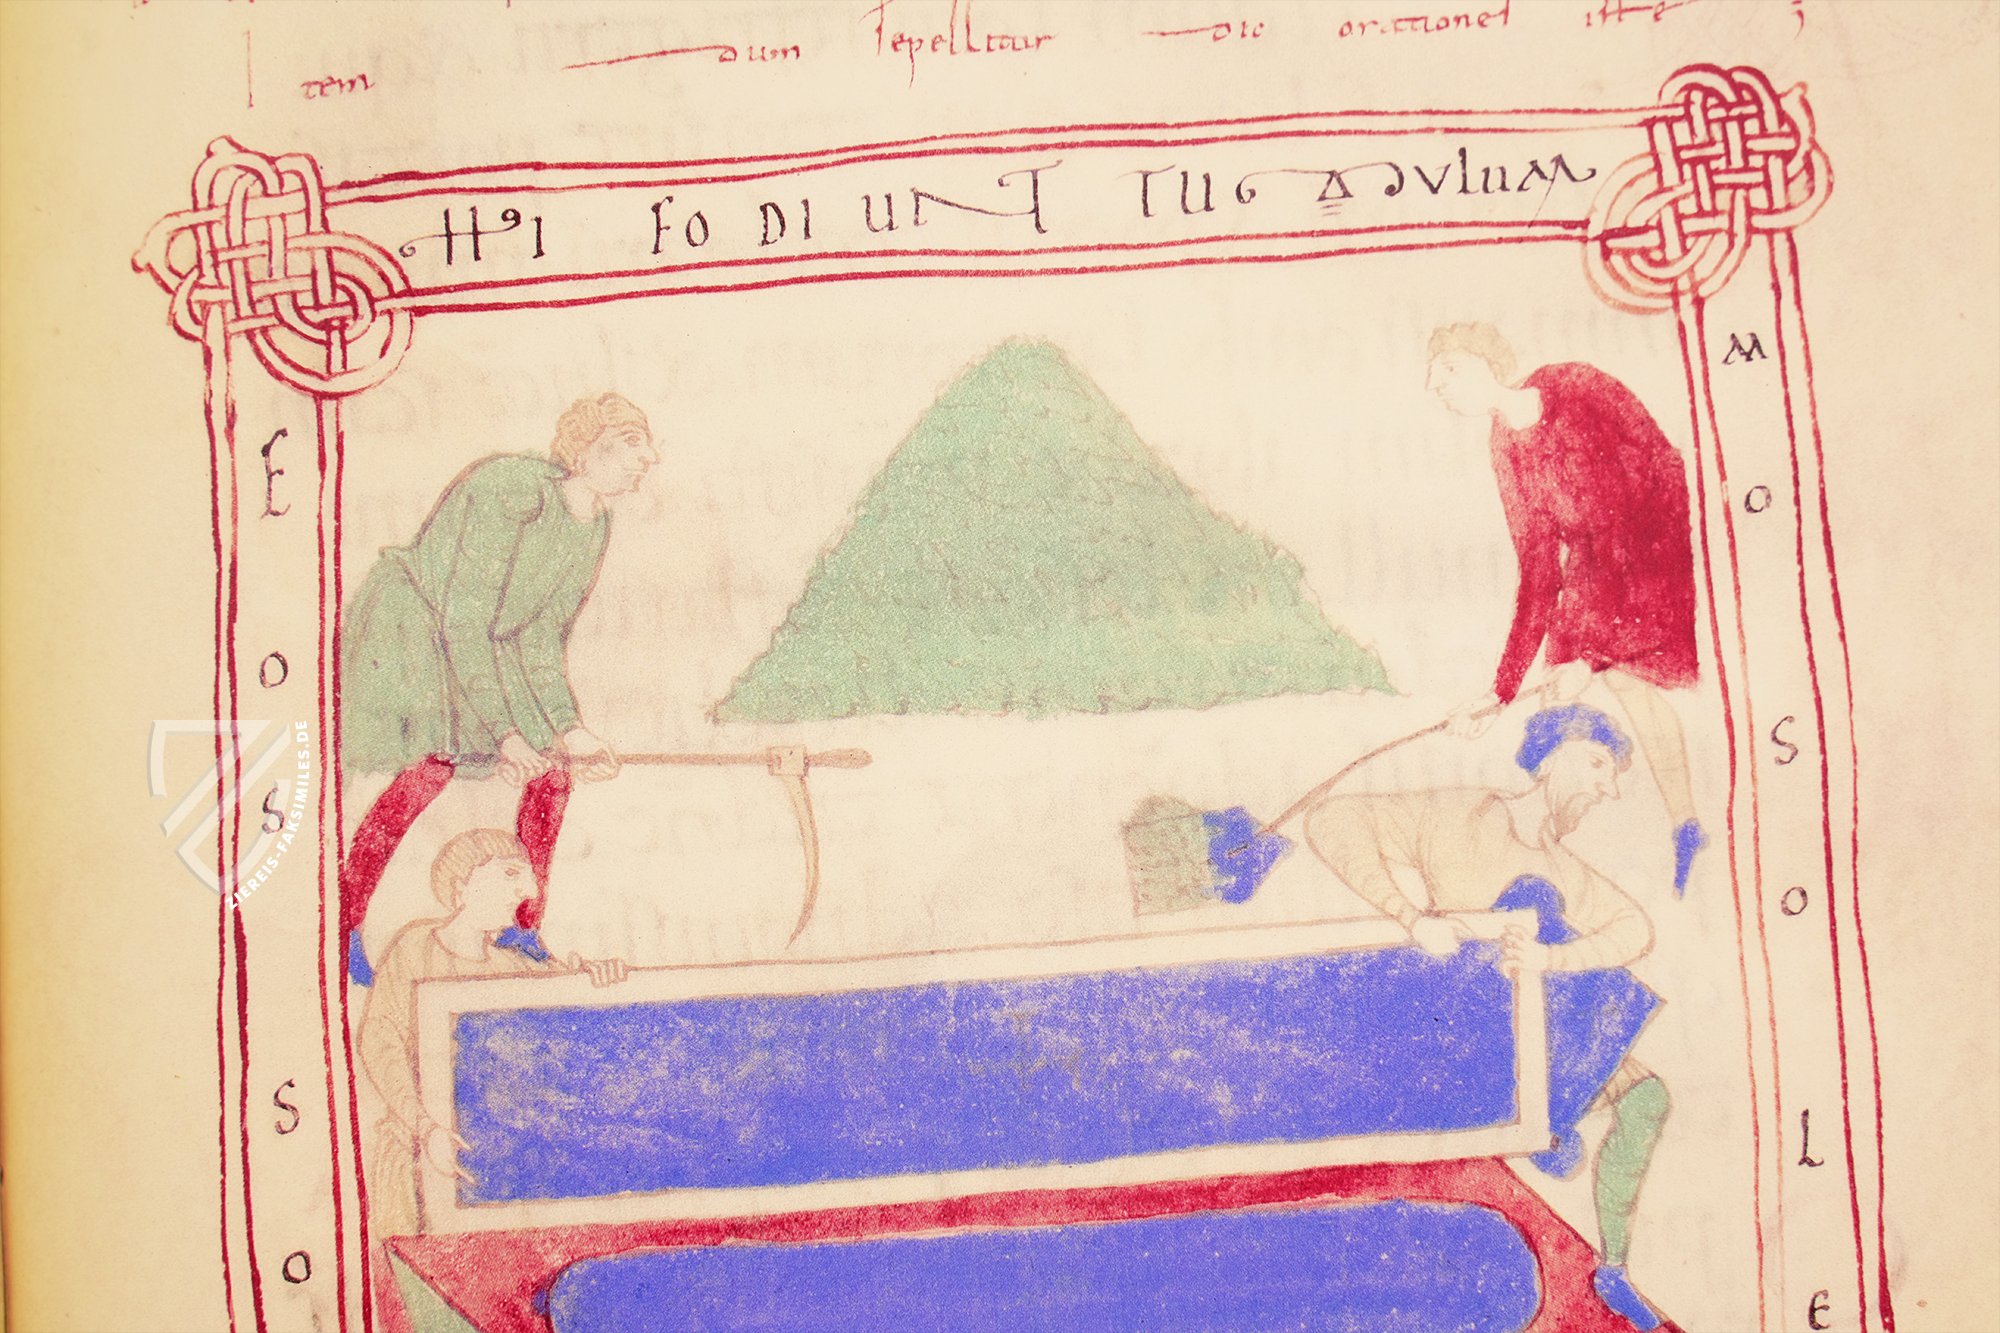 dum sepellitur dic orationes iste
tem
HI FODIUNT TUMULUM
E
O
S
S
O
M
O
S
O
L
E
ZIEREIS-FAKSIMILES.DE